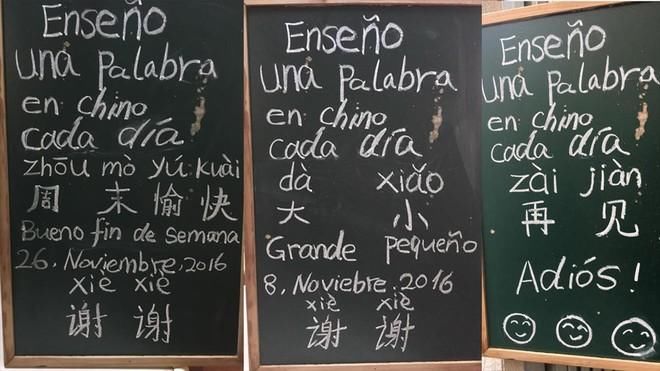 Enseño
una palabra
en chino
cada día
zhōu mò yú kuài
周 末 愉 快
Bueno fin de semana
26, Noviembre, 2016
xiè xiè
谢 谢
Enseño
una palabra
en chino
cada día
dà xiǎo
大 小
Grande pequeño
8, Noviebre, 2016
xiè xiè
谢 谢
Enseño
una palabra
en chino
cada día
zài jiàn
再 见
Adiós!